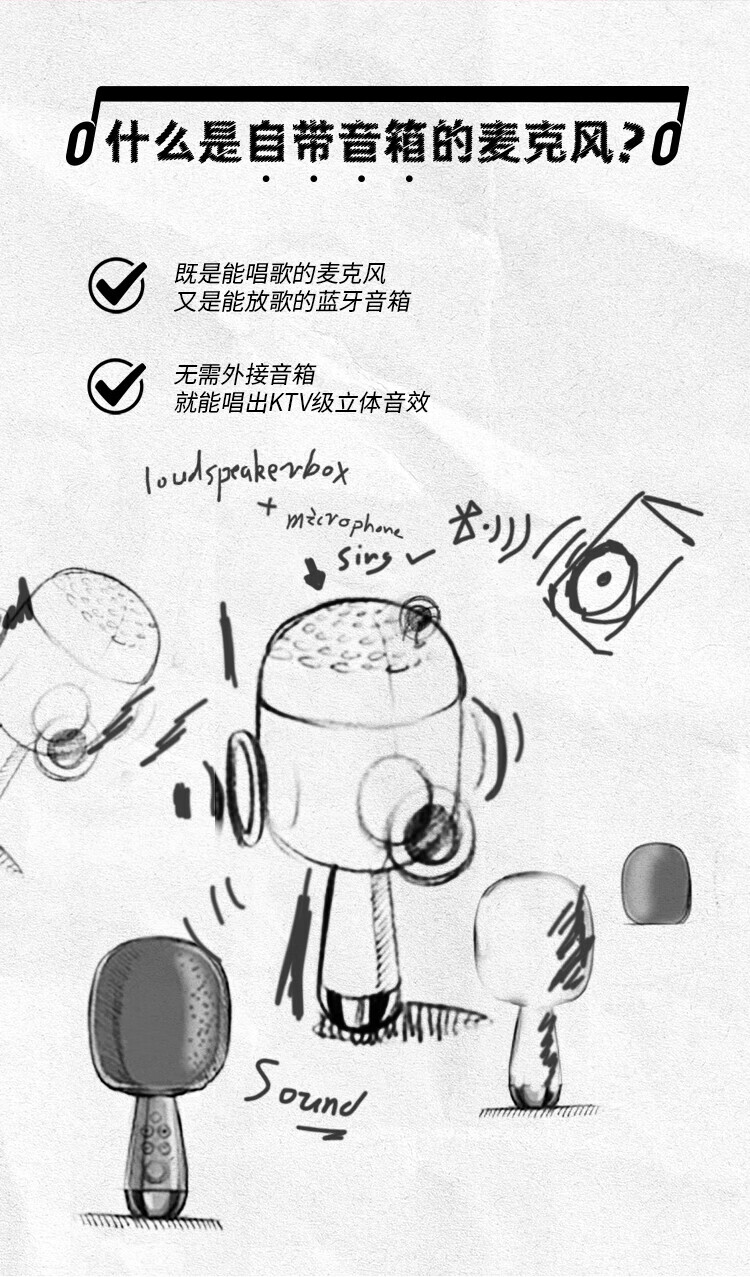 什么是自带音箱的麦克风?
既是能唱歌的麦克风
又是能放歌的蓝牙音箱
无需外接音箱
就能唱出KTV级立体音效
loudspeakerbox
+ microphone
sing
Sound